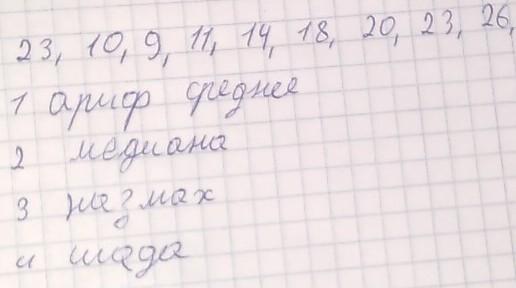 23, 10, 9, 11, 14, 18, 20, 23, 26,
1 ариф среднее
2 медиана
3 размах
4 мода